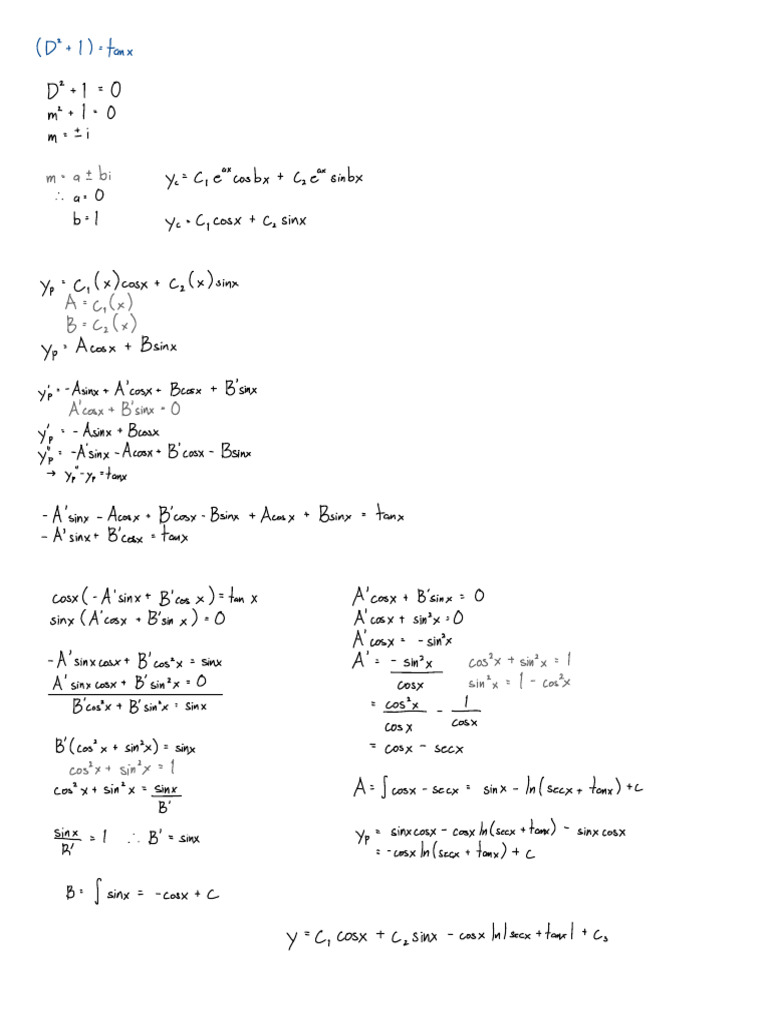 (D² + 1) = tanx
D² + 1 = 0
m² + 1 = 0
m = ± i
m = a ± bi
∴ a = 0
b = 1
y_c = C₁e^{ax}cosbx + C₂e^{ax}sinbx
y_c = C₁cosx + C₂sinx
y_p = C₁(x)cosx + C₂(x)sinx
A = C₁(x)
B = C₂(x)
y_p = Acosx + Bsinx
y_p' = -Asinx + A'cosx + Bcosx + B'sinx
A'cosx + B'sinx = 0
y_p' = -Asinx + Bcosx
y_p'' = -A'sinx - Acosx + B'cosx - Bsinx
→ y_p'' - y_p = tanx
-A'sinx - Acosx + B'cosx - Bsinx + Acosx + Bsinx = tanx
-A'sinx + B'cosx = tanx
cosx(-A'sinx + B'cosx) = tanx
sinx(A'cosx + B'sinx) = 0
-A'sinxcosx + B'cos²x = sinx
A'sinxcosx + B'sin²x = 0
B'cos²x + B'sin²x = sinx
B'(cos²x + sin²x) = sinx
cos²x + sin²x = 1
cos²x + sin²x = sinx/B'
sinx/B' = 1 ∴ B' = sinx
B = ∫sinx = -cosx + C
A'cosx + B'sinx = 0
A'cosx + sin²x = 0
A'cosx = -sin²x
A' = -sin²x/cosx
cos²x + sin²x = 1
sin²x = 1 - cos²x
= cos²x/cosx - 1/cosx
= cosx - secx
A = ∫cosx - secx = sinx - ln(secx + tanx) + C
y_p = sinxcosx - cosxln(secx + tanx) - sinxcosx
= -cosxln(secx + tanx) + C
y = C₁cosx + C₂sinx - cosx ln|secx + tanx| + C₃